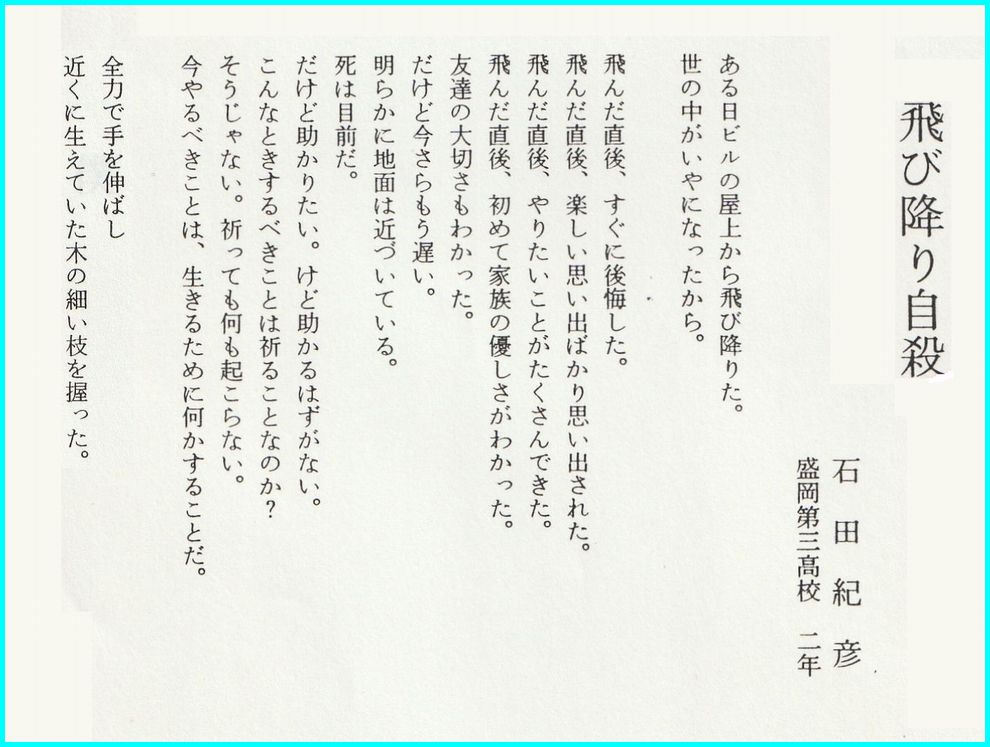 飛び降り自殺
石田紀彦
盛岡第三高校 二年
ある日ビルの屋上から飛び降りた。
世の中がいやになったから。
飛んだ直後、すぐに後悔した。
飛んだ直後、楽しい思い出ばかり思い出された。
飛んだ直後、やりたいことがたくさんできた。
飛んだ直後、初めて家族の優しさがわかった。
友達の大切さもわかった。
だけど今さらもう遅い。
明らかに地面は近づいている。
死は目前だ。
だけど助かりたい。けど助かるはずがない。
こんなときするべきことは祈ることなのか?
そうじゃない。祈っても何も起こらない。
今やるべきことは、生きるために何かすることだ。
全力で手を伸ばし
近くに生えていた木の細い枝を握った。